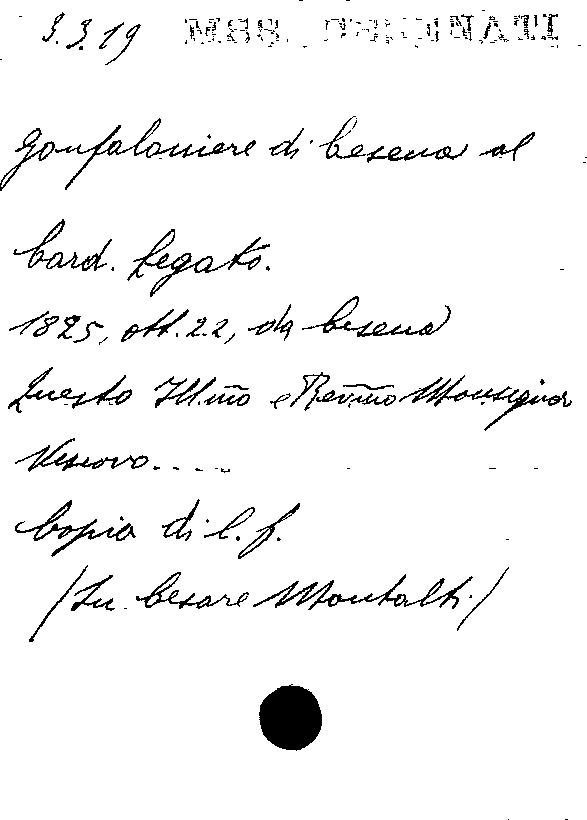 3.3.19 MSS.
Gonfaloniere di Cesena al
Card. Legato.
1825, ott. 22, da Cesena
Questo Ill.m̅o e Rev.m̅o Monsignor
Vescovo.....
Copia di l. f.
(Su Cesare Montalti)